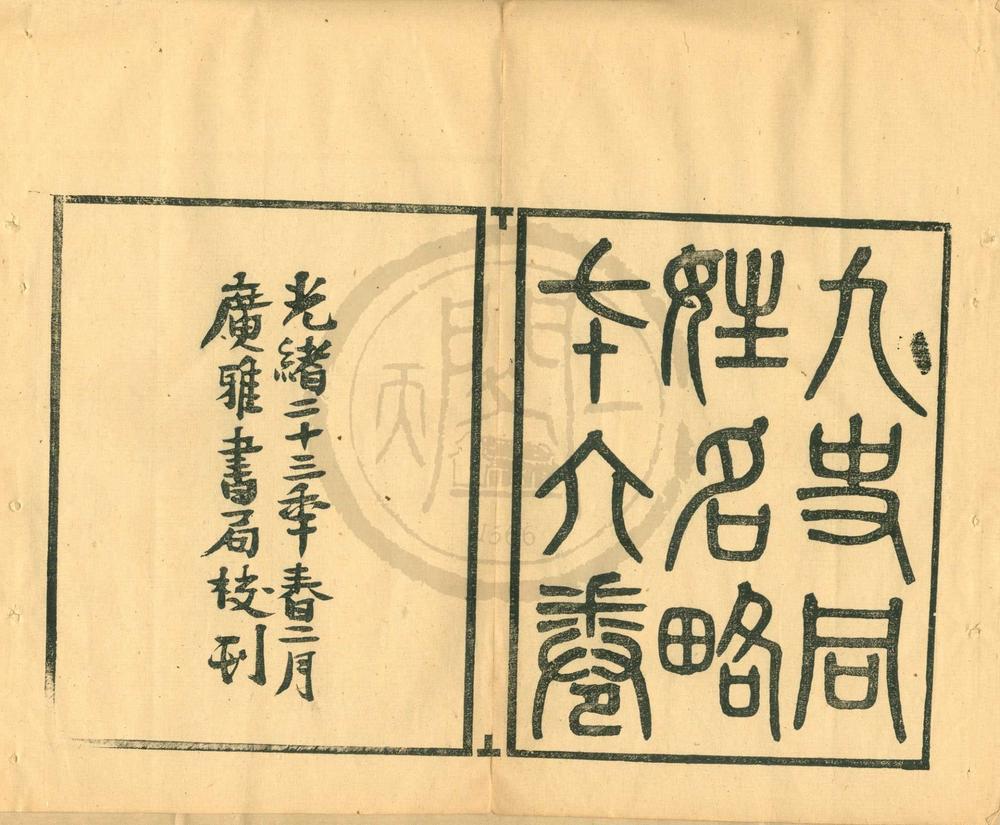 九史同
姓名略
七十六卷
光緒二十三年春二月
廣雅書局校刊
天一
1566